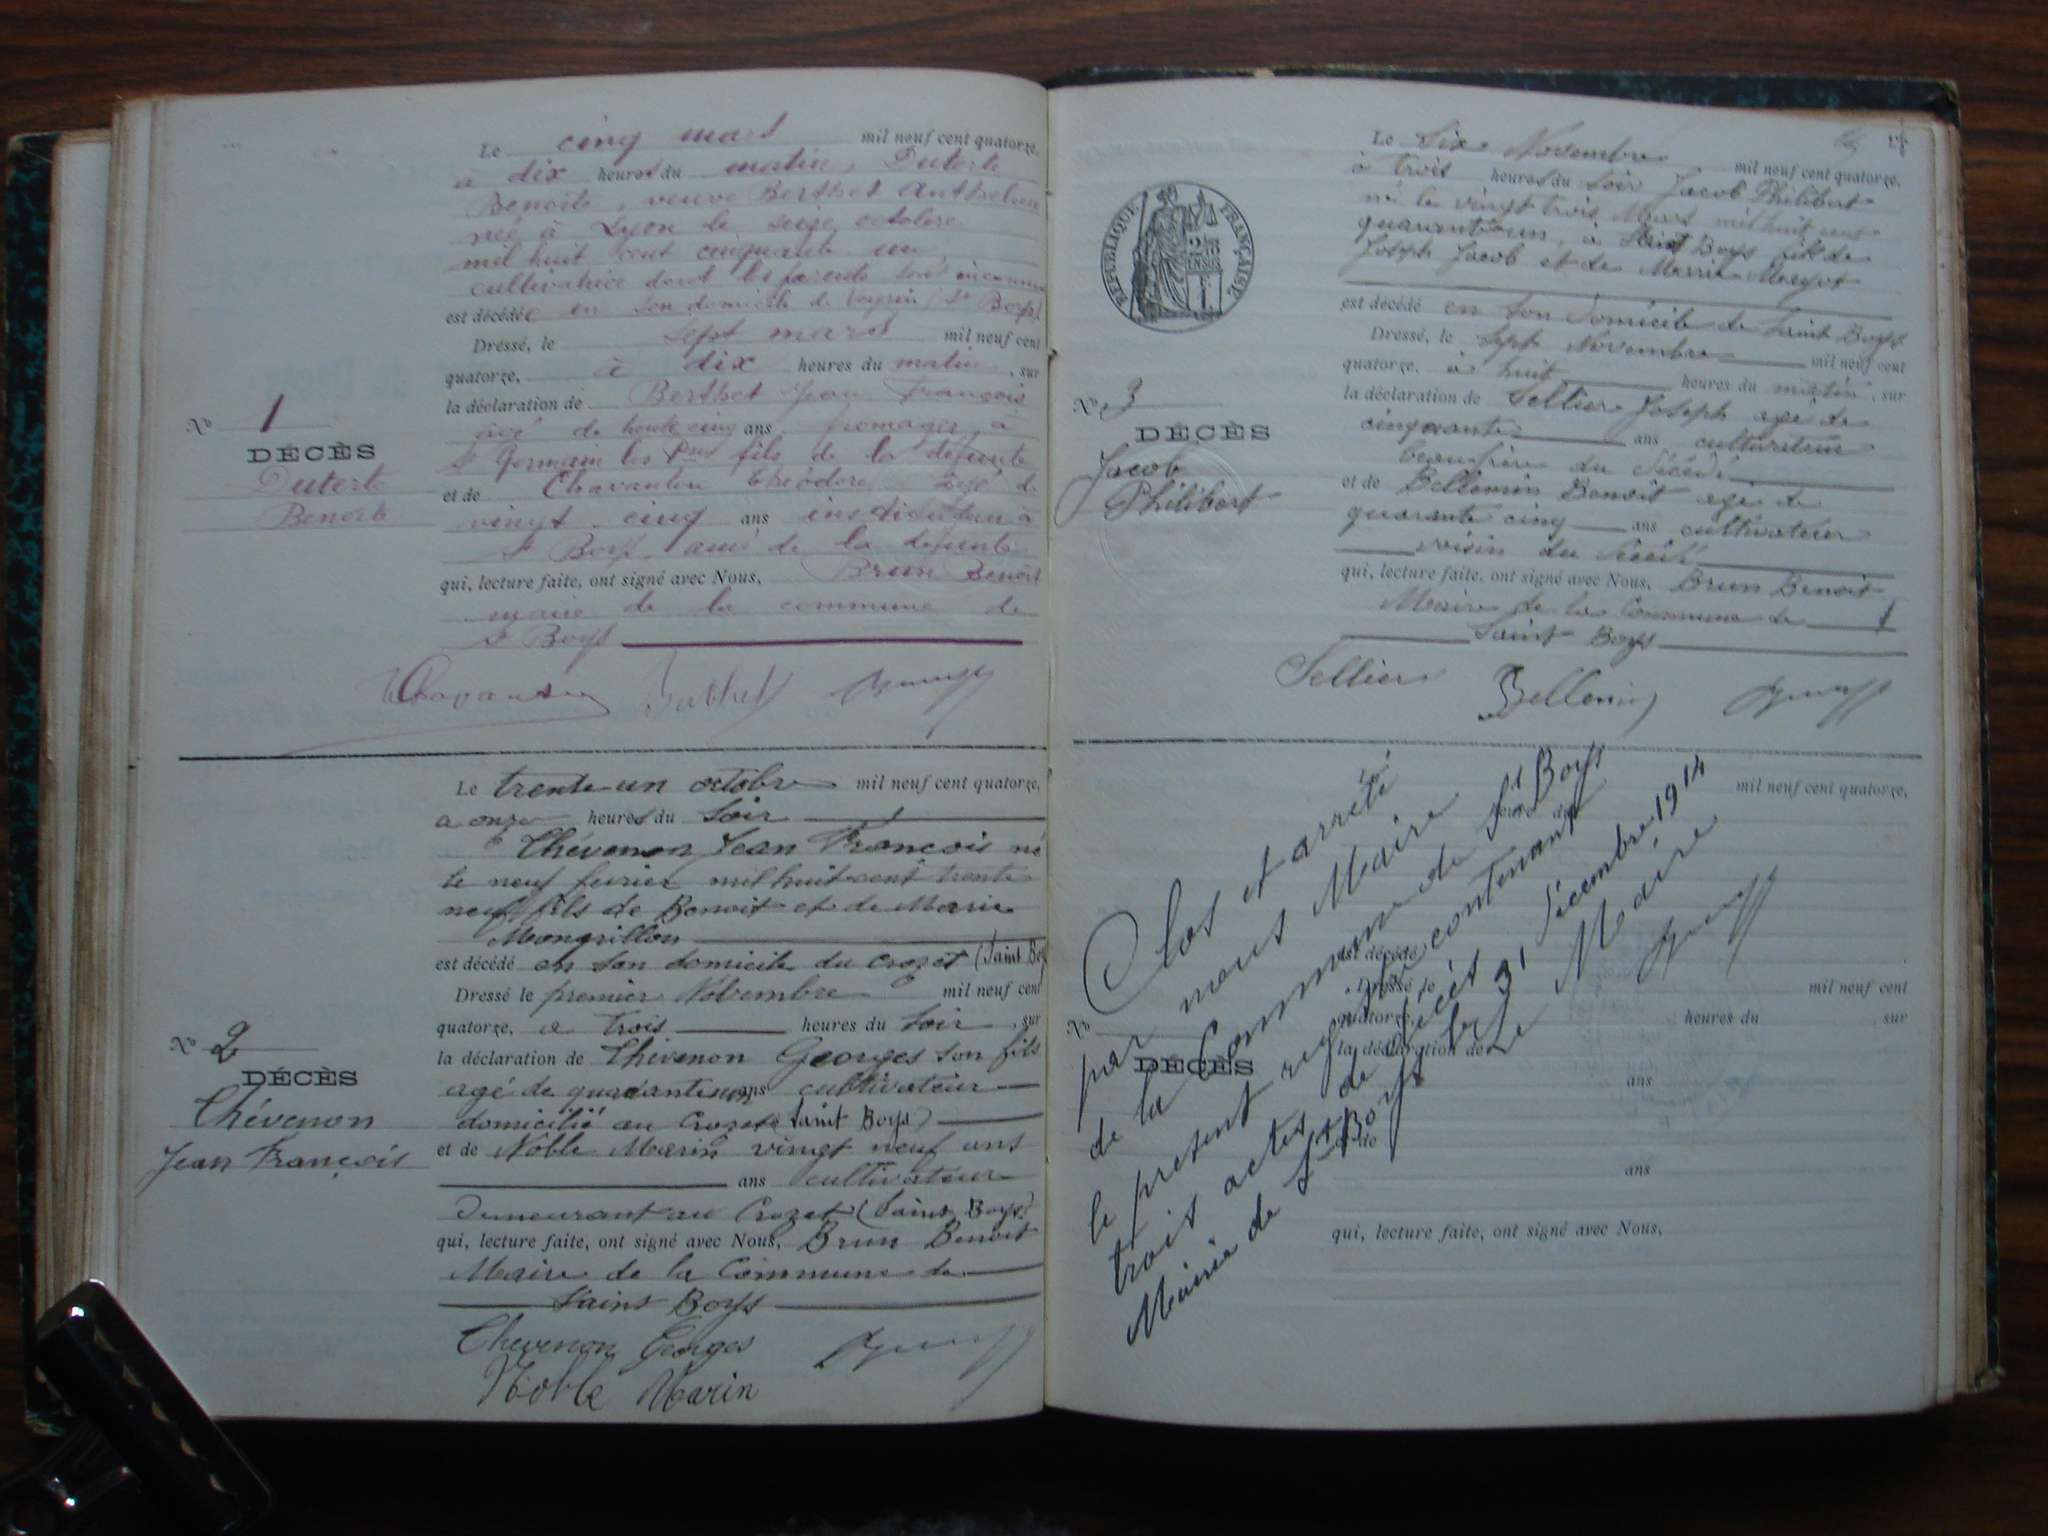 Le cinq mars mil neuf cent quatorze,
à dix heures du matin, Duterte
Benoîte, veuve Berthet Anthelme
née à Lyon le seize octobre
mil huit cent cinquante un,
cultivatrice dont les parents sont inconnus
est décédée en son domicile de Voyrin (St Boys)
Dressé, le sept mars mil neuf cent
quatorze, à dix heures du matin, sur
la déclaration de Berthet Jean François
âgé de trente cinq ans fromager à
St Germain les fils de la défunte
et de Chavanton Théodore âgé de
vingt cinq ans instituteur à
St Boys ami de la défunte
qui, lecture faite, ont signé avec Nous, Brun Benoit
maire de la commune de
St Boys
No 1
DÉCÈS
Duterte
Benoîte
Berthet
Le trente un octobre mil neuf cent quatorze,
a onze heures du Soir
Chévenon Jean François né
le neuf fevrier mil huit cent trente
neuf fils de Benoit et de Marie
Mongrillon
est décédé en son domicile du Crozet (Saint Boys
Dressé le premier Novembre mil neuf cent
quatorze, a trois heures du Soir, sur
la déclaration de Chévenon Georges son fils
agé de quarante un ans cultivateur
domicilié au Crozet (Saint Boys)
et de Noble Marin vingt neuf ans
ans cultivateur
Demeurant au Crozet (Saint Boys)
qui, lecture faite, ont signé avec Nous, Brun Benoit
Maire de la Commune de
Saint Boys
No 2
DÉCÈS
Chévenon
Jean François
Chevenon Georges
Noble Marin
Le Six Novembre mil neuf cent quatorze,
à trois heures du Soir Jacob Philibert
né le vingt trois Mars mil huit cent
quarante un, à Saint Boys fils de
Joseph Jacob et de Marrie
est décédé en son Domicile de Saint Boys
Dressé, le Sept Novembre mil neuf cent
quatorze, à huit heures du matin, sur
la déclaration de Sellier Joseph agé de
cinquante ans cultivateur
beau-frère du Décédé
et de Bellemin Benoit agé de
quarante cinq ans cultivateur
voisin du Décédé
qui, lecture faite, ont signé avec Nous, Brun Benoit
Maire de la Commune de
Saint Boys
RÉPUBLIQUE FRANÇAISE
No 3
DÉCÈS
Jacob
Philibert
Sellier
Bellemin
Clos et arrêté
par nous Maire
de la Commune de St Boys
le présent registre contenant
trois actes de décès
Mairie de St Boys le 31 Décembre 1914
Le Maire
mil neuf cent quatorze,
heures du
est décédé
Dressé, le mil neuf cent
quatorze, heures du , sur
la déclaration de
ans
et de
ans
qui, lecture faite, ont signé avec Nous,
No
DÉCÈS